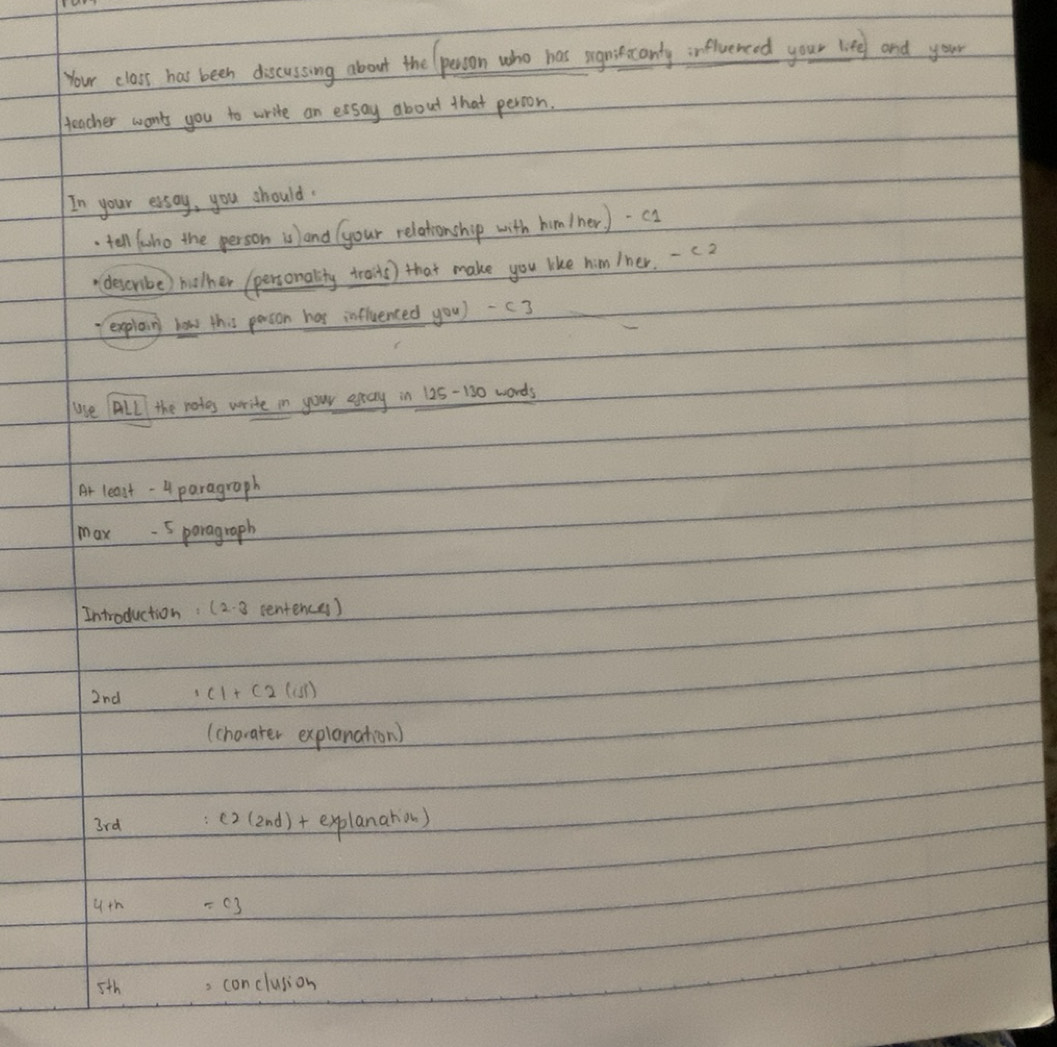 Your class has been discussing about the (person who has significanty influenced your life) and your
teacher wants you to write an essay about that person.
In your essay, you should:
• tell (who the person is) and (your relationship with him/her.) - C1
• (describe) his/her (personality traits) that make you like him/her. - C2
• (explain) how this person has influenced you) - C3
Use ALL the notes write in your essay in 125-130 words
At least - 4 paragraph
max - 5 paragraph
Introduction : (2-3 sentences)
2nd : C1 + C2 (1st)
(charater explanation)
3rd : C2 (2nd) + explanation)
4th = C3
5th : conclusion